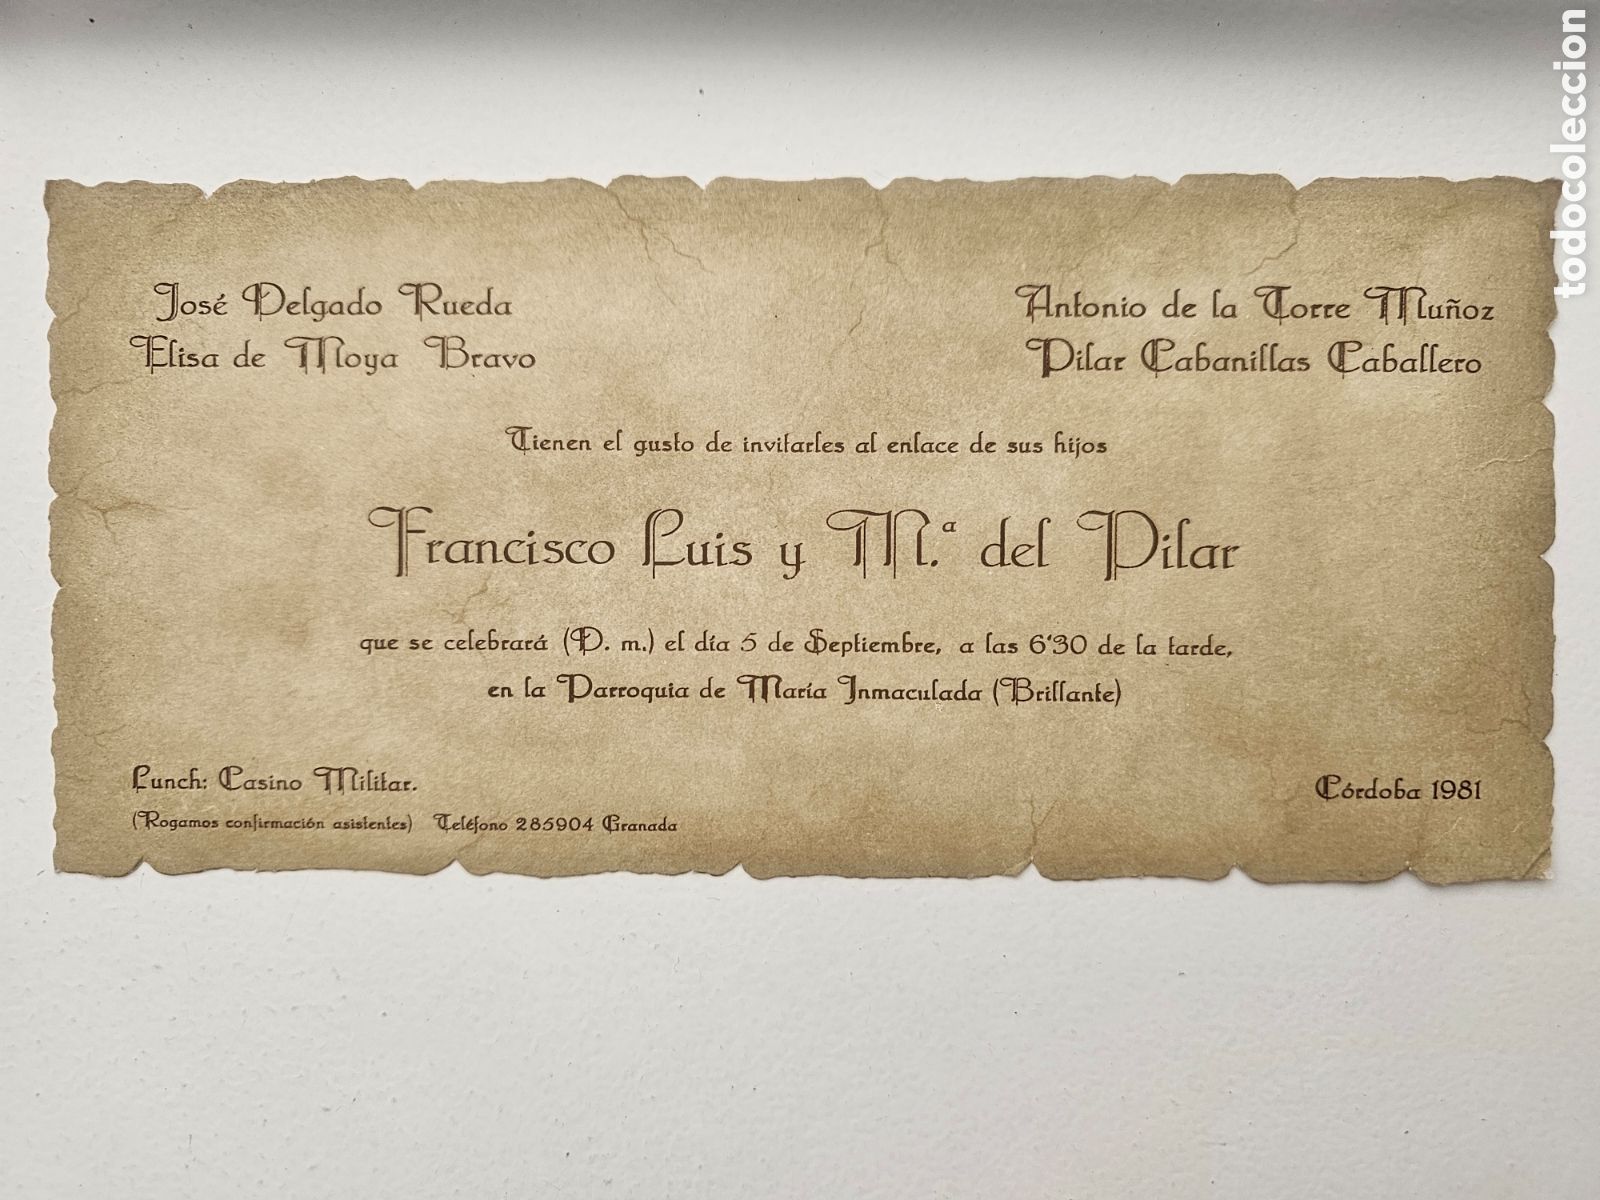 José Delgado Rueda
Elisa de Moya Bravo
Antonio de la Torre Muñoz
Pilar Cabanillas Caballero
Tienen el gusto de invitarles al enlace de sus hijos
Francisco Luis y M.ª del Pilar
que se celebrará (D. m.) el día 5 de Septiembre, a las 6'30 de la tarde,
en la Parroquia de María Inmaculada (Brillante)
Lunch: Casino Militar.
(Rogamos confirmación asistentes) Teléfono 285904 Granada
Córdoba 1981
todocoleccion